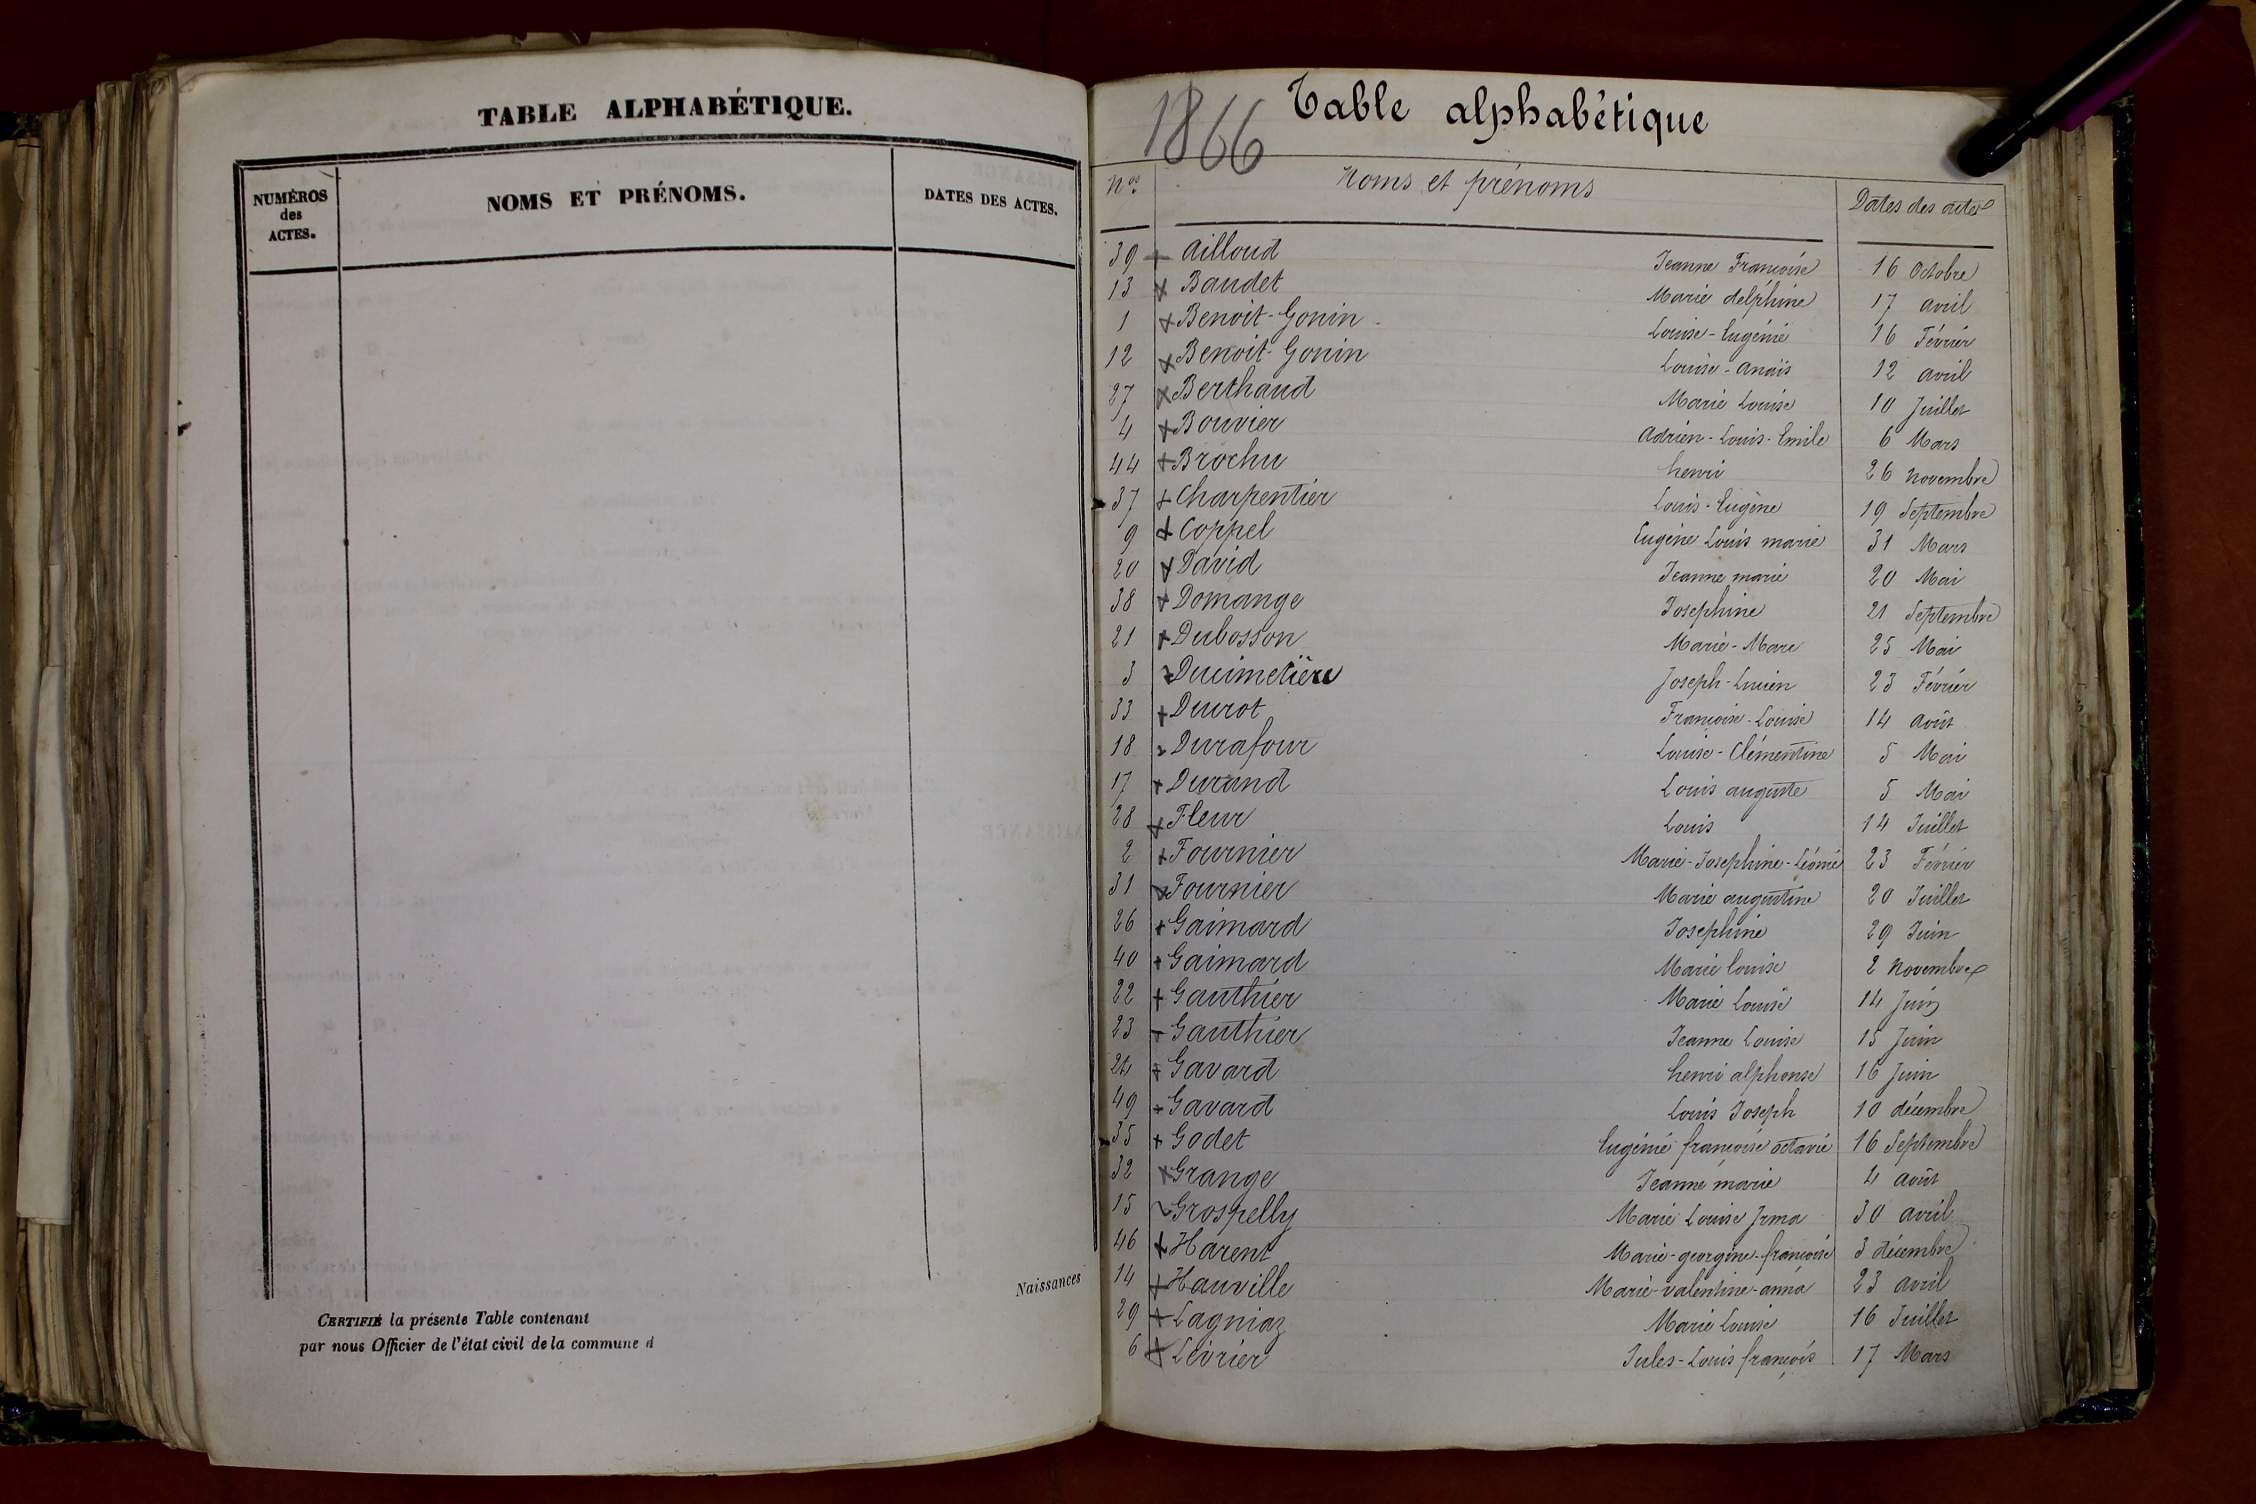 TABLE ALPHABÉTIQUE.
NUMÉROS des ACTES. NOMS ET PRÉNOMS. DATES DES ACTES.
Naissances
CERTIFIÉ la présente Table contenant
par nous Officier de l'état civil de la commune d
1866 Table alphabétique
Nos Noms et prénoms Dates des actes
39 Ailloud Jeanne Françoise 16 Octobre
13 Baudet Marie delphine 17 avril
1 Benoit-Gonin Louise-Eugénie 16 Février
12 Benoit-Gonin Louise-Anaïs 12 avril
27 Berthaud Marie Louise 10 Juillet
4 Bouvier Adrien-Louis-Emile 6 Mars
44 Brochu henri 26 novembre
37 Charpentier Louis-Eugène 19 Septembre
9 Coppel Eugène Louis marie 31 Mars
20 David Jeanne marie 20 Mai
38 Domange Josephine 21 Septembre
21 Dubosson Marie-Marc 25 Mai
3 Ducimetière Joseph-Lucien 23 Février
33 Ducrot Françoise-Louise 14 août
18 Durafour Louise-Clémentine 5 Mai
17 Durand Louis auguste 5 Mai
28 Fleur Louis 14 Juillet
2 Fournier Marie-Josephine-Léonie 23 Février
31 Fournier Marie augustine 20 Juillet
26 Gaimard Josephine 29 Juin
40 Gaimard Marie louise 2 novembre
22 Gauthier Marie Louise 14 Juin
23 Gauthier Jeanne Louise 15 Juin
24 Gavard henri alphonse 16 Juin
49 Gavard Louis Joseph 10 décembre
35 Godet Eugénie françoise octavie 16 Septembre
32 Grange Jeanne marie 4 août
15 Grospelly Marie Louise Irma 30 avril
46 Harent Marie-georgine-françoise 3 décembre
14 Hauville Marie-valentine-anna 23 avril
29 Lagniaz Marie Louise 16 Juillet
6 Lévrier Jules-Louis françois 17 Mars